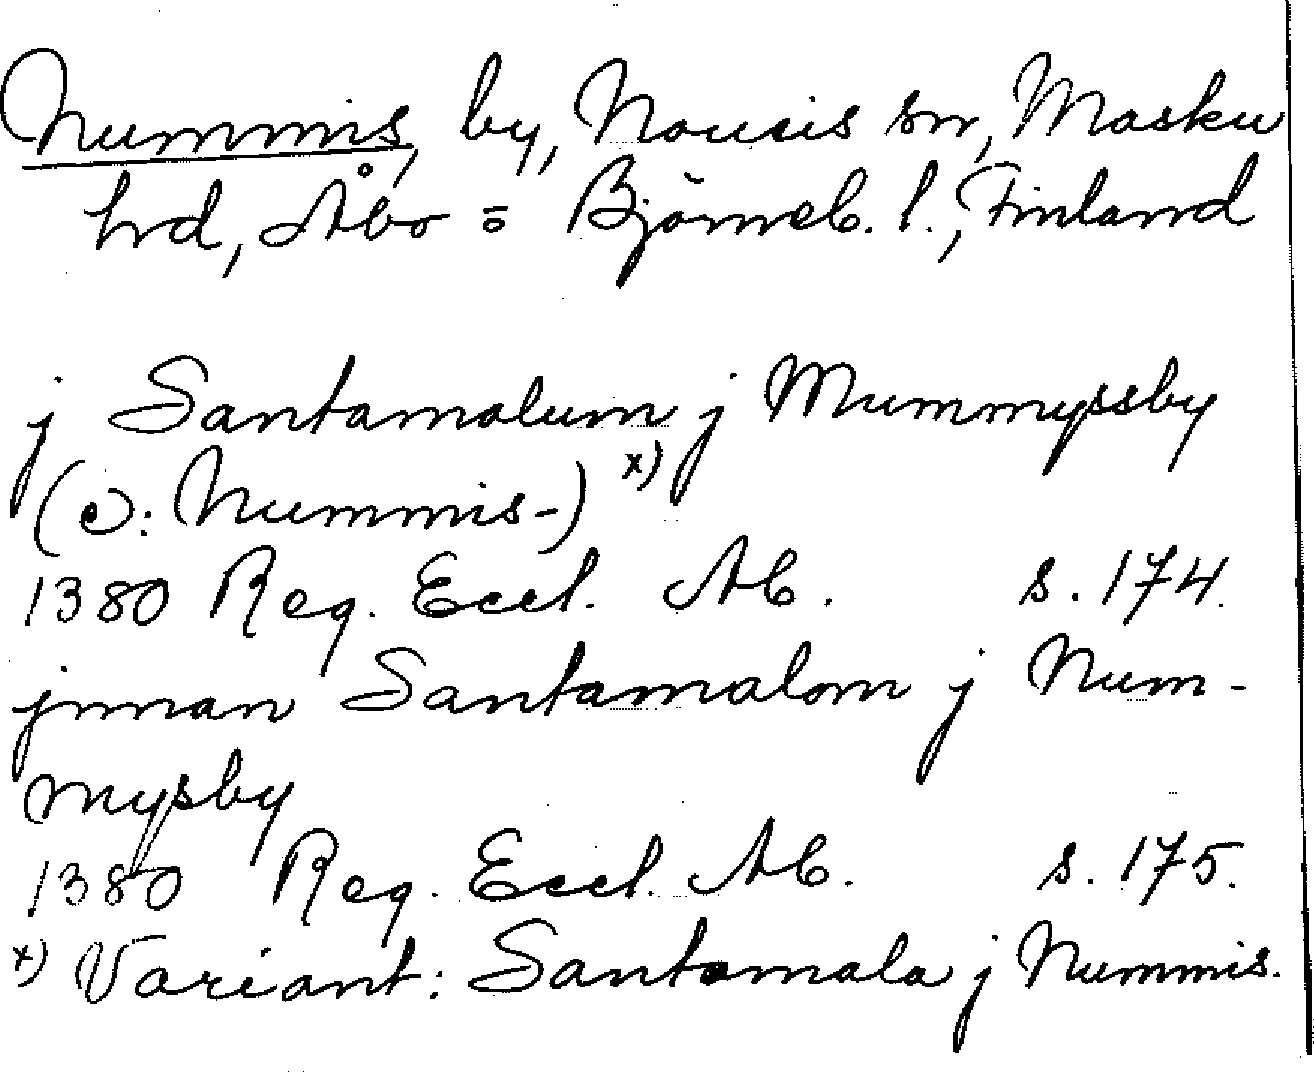 Nummis, by, Nousis sn, Masku
hd, Åbo o Björneb. l., Finland
j Santamalum j Mummyssby
(ɔ: Nummis-) x)
1380 Reg. Eccl. Ab. s. 174.
jnnan Santamalom j Num-
mysby
1380 Reg. Eccl. Ab. s. 175.
x) Variant: Santamala j Nummis.